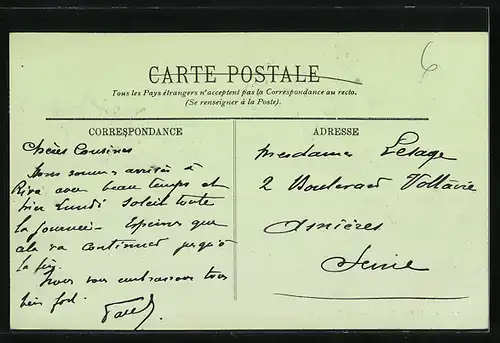 6
CARTE POSTALE
Tous les Pays étrangers n'acceptent pas la Correspondance au recto.
(Se renseigner à la Poste).
CORRESPONDANCE
Chères Cousines
Nous sommes arrivées à
avec beau temps et
hier Lundi soleil toute
la journée. Espérons que
cela va continuer jusqu'à
la fin.
Nous vous embrassons tous
bien fort.
ADRESSE
Mesdames Lesage
2 Boulevard Voltaire
Asnières
Seine